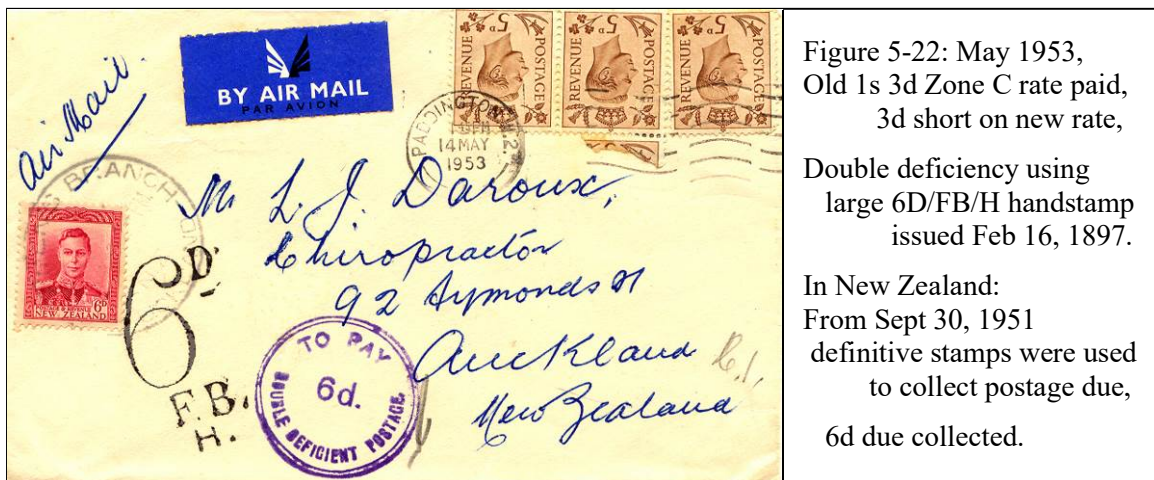 POSTAGE 5D REVENUE
POSTAGE 5D REVENUE
POSTAGE 5D REVENUE
BY AIR MAIL
PAR AVION
Air Mail.
PADDINGTON. W.2.
14 MAY
1953
BRANCH
6D
NEW ZEALAND
6D
F.B.
H.
Mr L. J. Daroux,
Chiropractor
92 Symonds St
Auckland
New Zealand
TO PAY
6d.
DOUBLE DEFICIENT POSTAGE.
Figure 5-22: May 1953,
Old 1s 3d Zone C rate paid,
3d short on new rate,
Double deficiency using
large 6D/FB/H handstamp
issued Feb 16, 1897.
In New Zealand:
From Sept 30, 1951
definitive stamps were used
to collect postage due,
6d due collected.